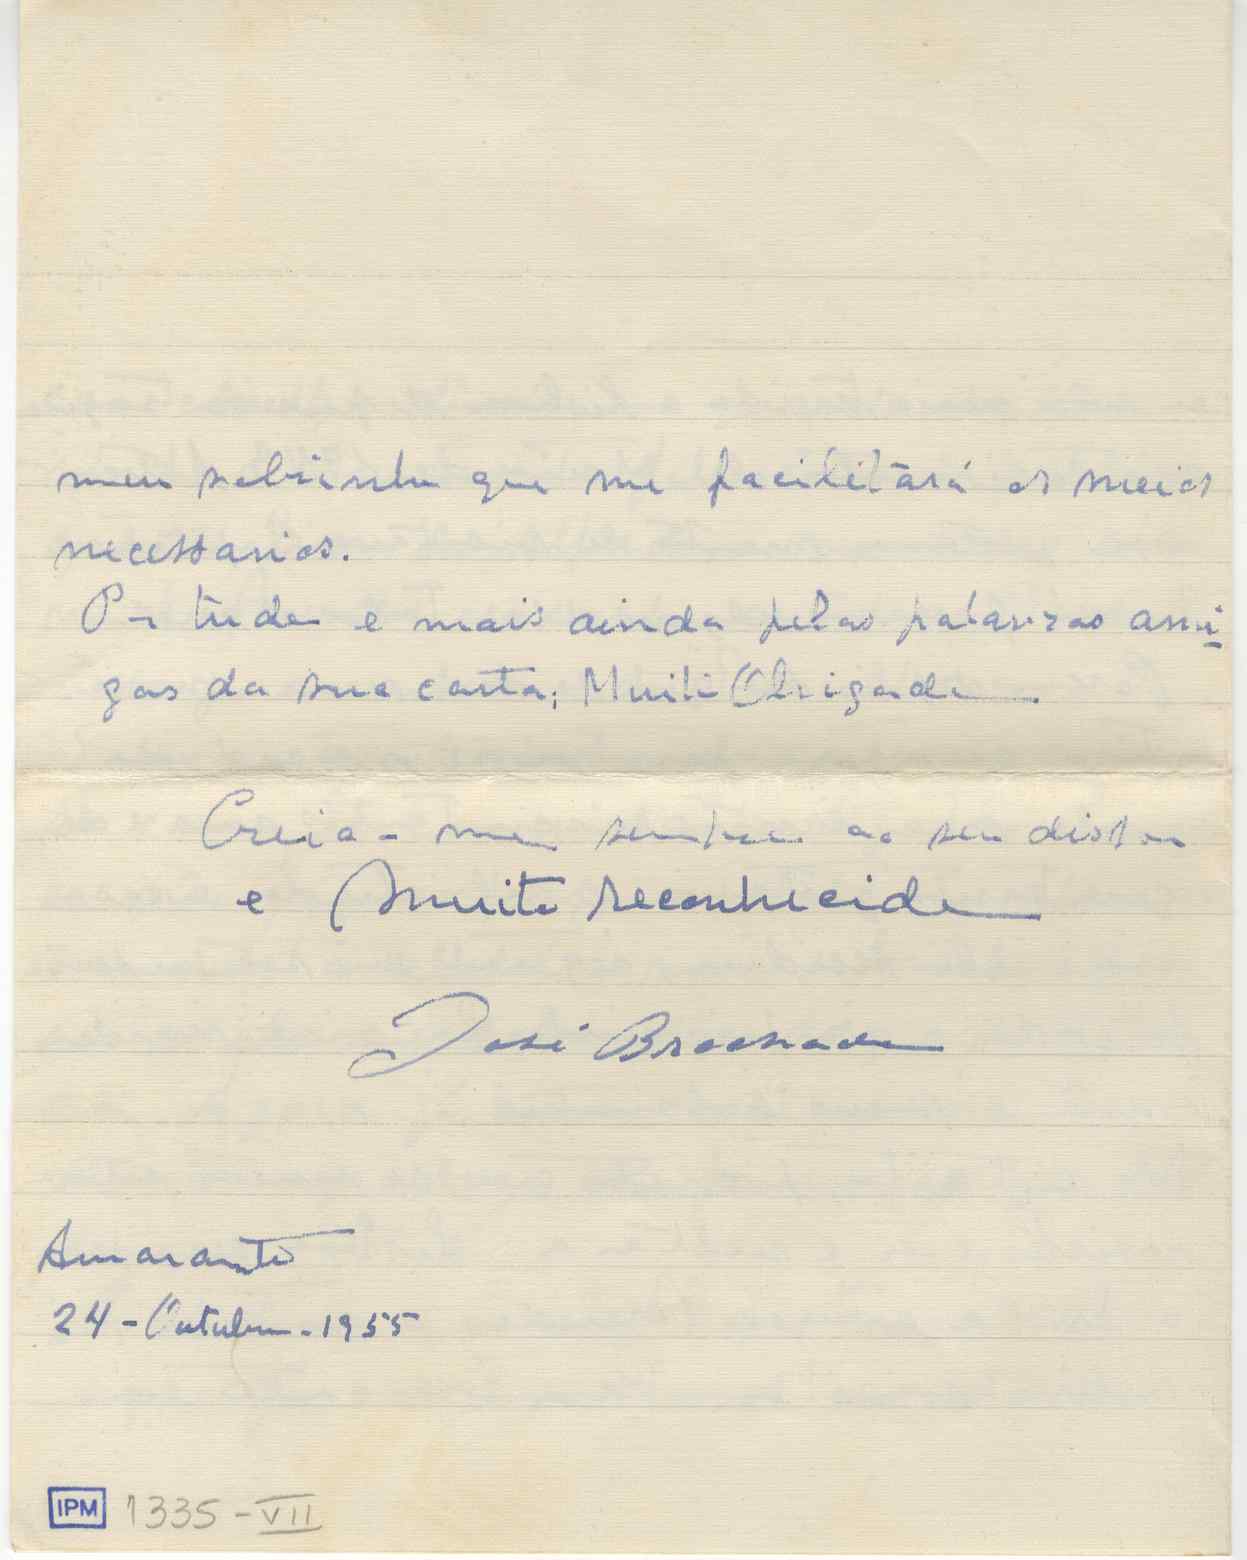 meu sobrinho que me facilitará os meios
necessarios.
Por tudo e mais ainda pelas palavras ami-
gas da sua carta; Muito Obrigado
Creia-me sempre ao seu dispor
e Muito reconhecido
José Brochado
Amarante
24-Outubro-1955
IPM 1335-VII